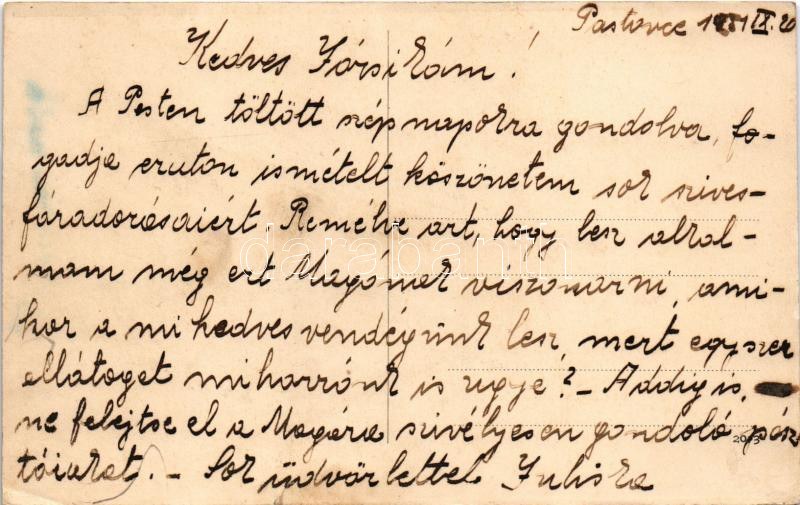 Pastovce 1931 IX. 20
Kedves Józsikám!
A Pesten töltött szép napokra gondolva, fo-
gadja ezuton ismételt köszönetem sok szives-
fáradozásaiért. Remélve azt, hogy lesz alkal-
mam még ezt Magának viszonozni, ami-
kor a mi kedves vendégünk lesz, mert egyszer
ellátoget mihozzánk is ugye? - Addig is,
ne felejtse el a Magára szivélyesen gondoló pász
tóiakat. - Sok üdvözlettel Juliska
darabanth